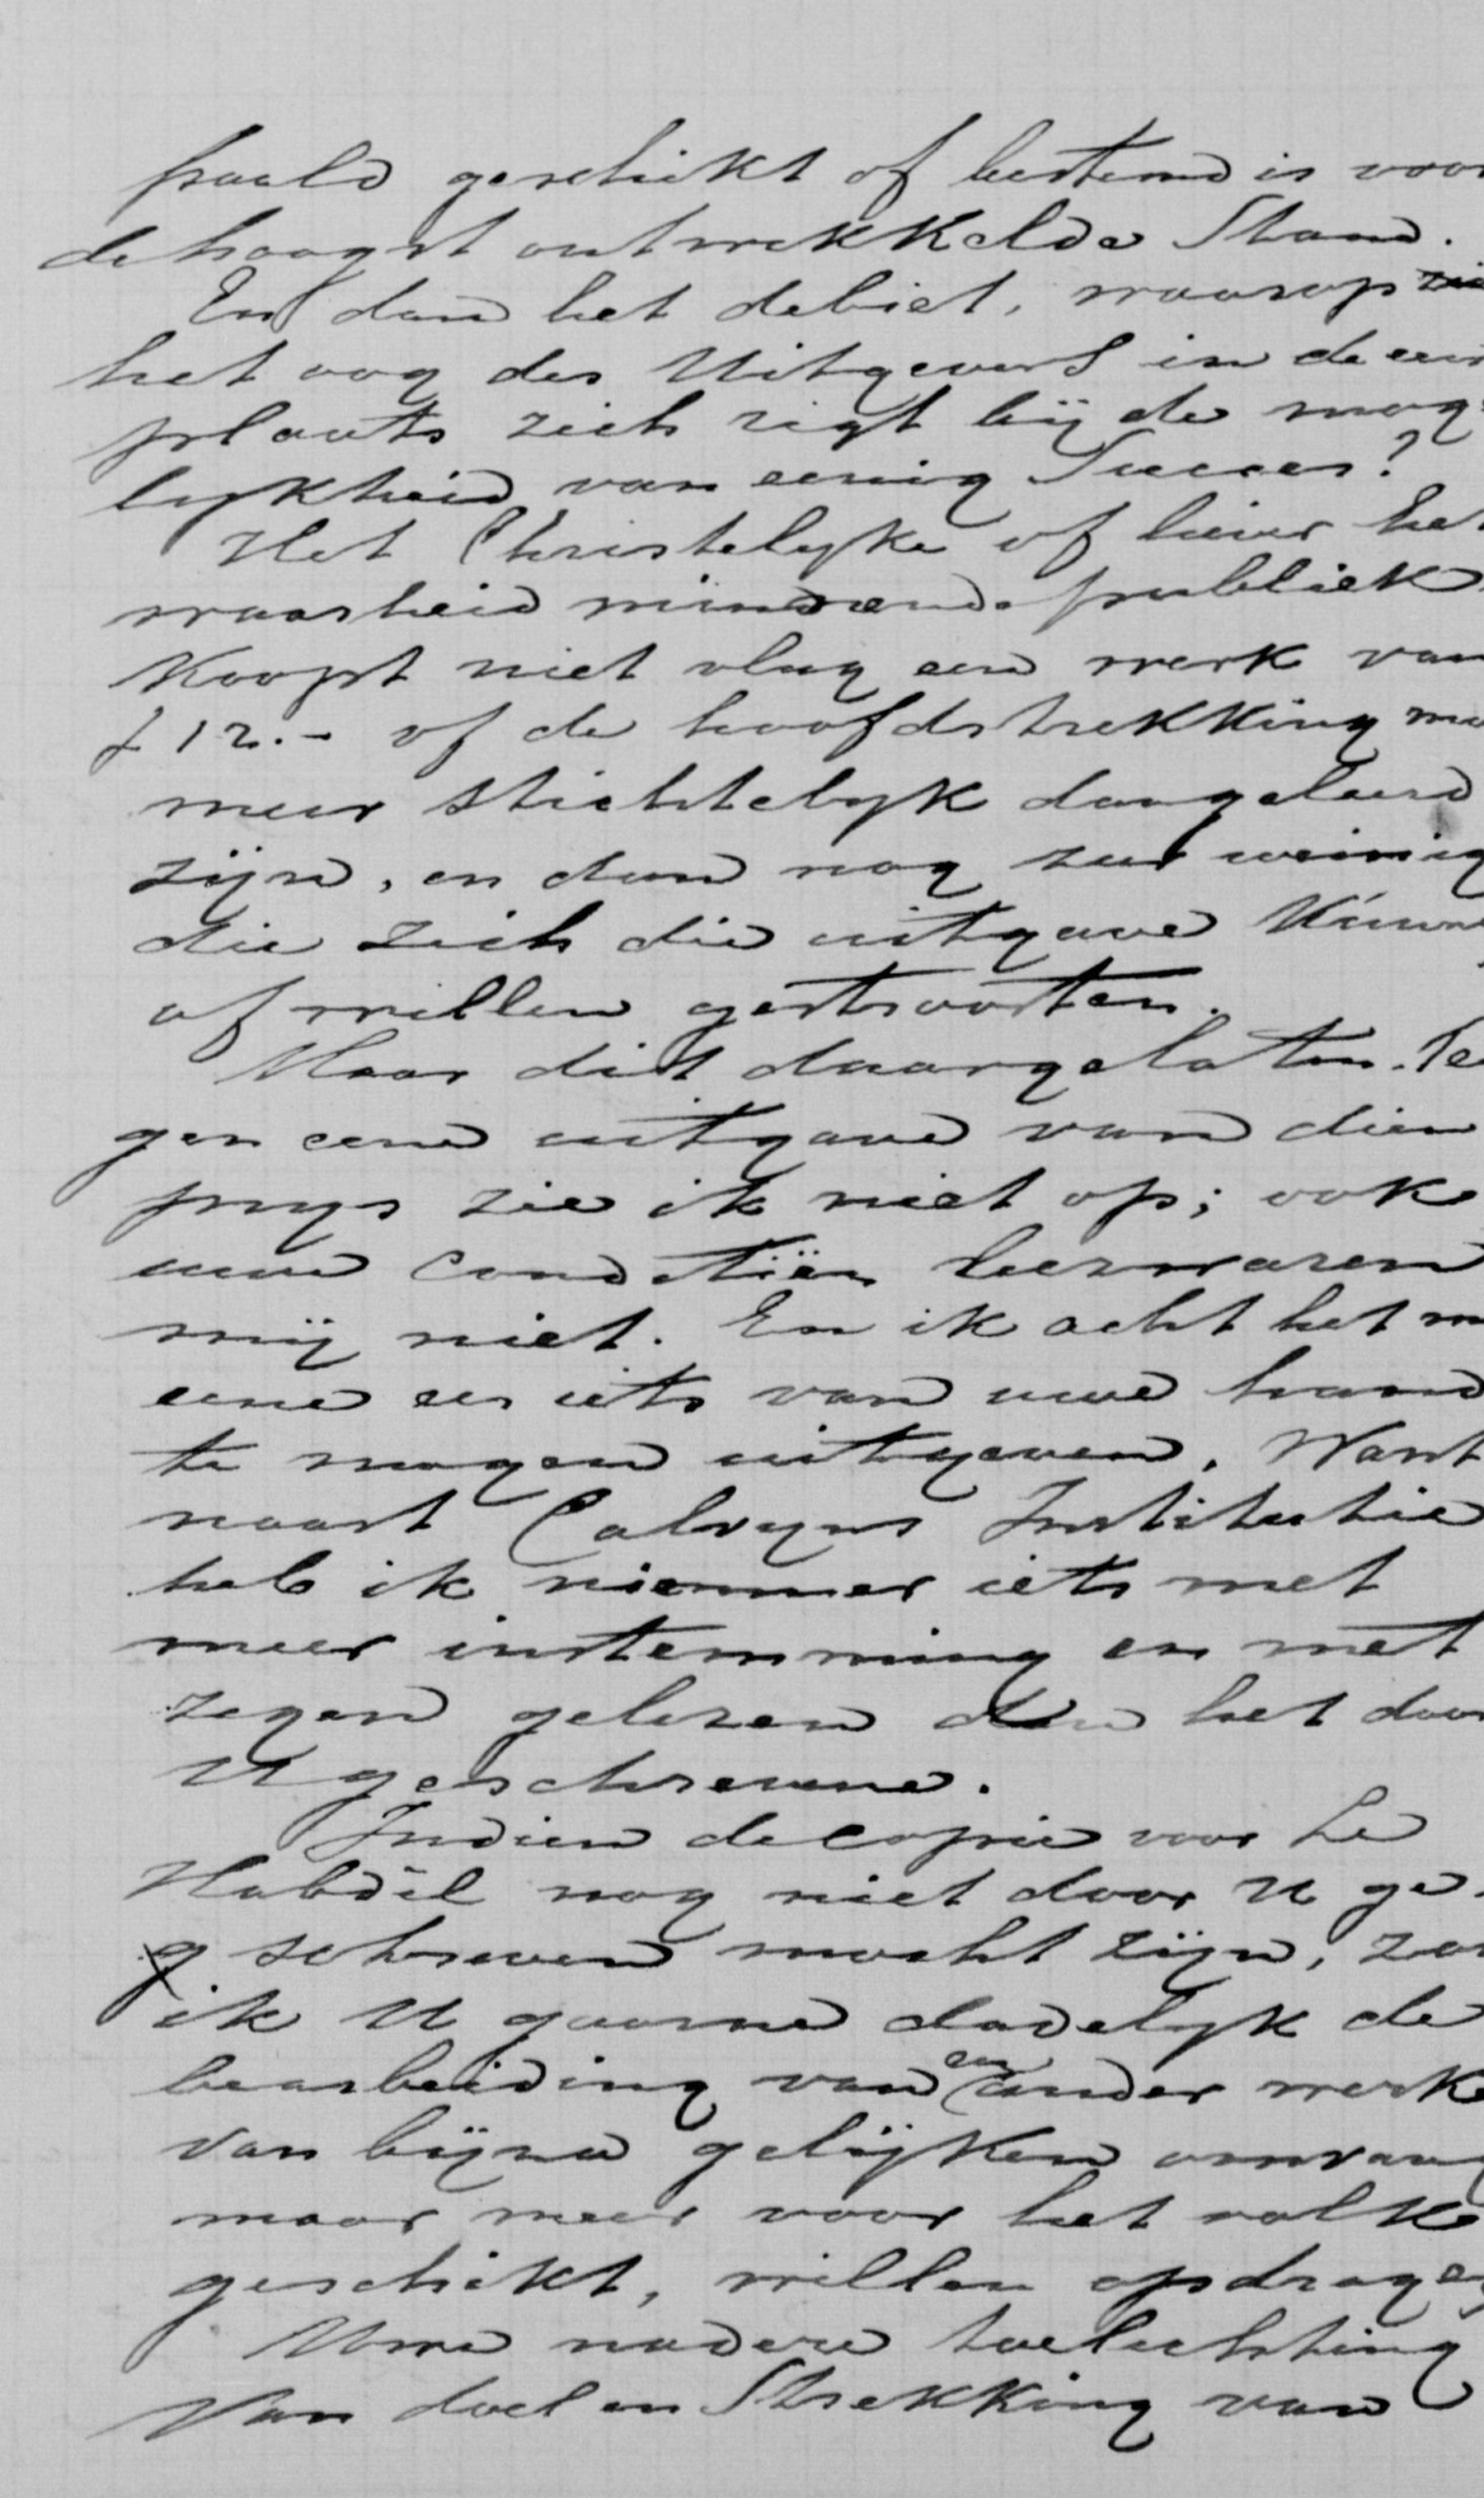 paald geschikt of bestemd is voor
de hoogst ontwikkelde Stand.
En dan het debiet, waarop
het oog des Uitgevers in de eer
plaats zich rigt bij de mog
lykheid van eenig Succes?
Het Christelyke of liever het
waarheid minnende publiek
Koopt niet vlug een werk van
f 12.- of de hoofdstrekking mo
meer stichtelyk dan geleerd
zijn, en dan nog zeer weinig
die zich die uitgave Kunne
of willen getroosten.
Maar dit daargelaten. Te
gen eene uitgave van dien
prys zie ik niet op; ook
uwe Conditiën bezwaren
mij niet. En ik acht het m
eene eer iets van uwe hand
te mogen uitgeven. Want
naast Calvyns Institutie
heb ik nimmer iets met
meer instemming en met
zegen gelezen dan het door
U geschrevene.
Indien de copie voor Le
Habdil nog niet door U ge
schreven mocht zijn, zou
ik U gaarne dadelyk de
bearbeiding van een ander werk
van bijna gelijken omvang
maar meer voor het volk
geschikt, willen opdragen
Uwe nadere toelichting
Van doel en Strekking van